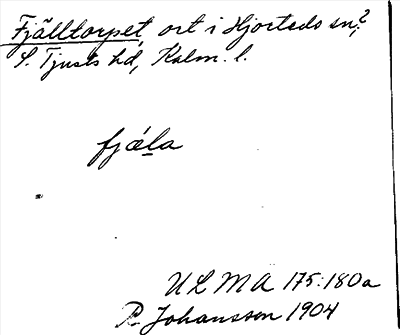 Fjälltorpet, ort i Hjorteds sn,?
S. Tjusts hd, Kalm. l.
fjæla
ULMA 175:180a
R. Johansson 1904